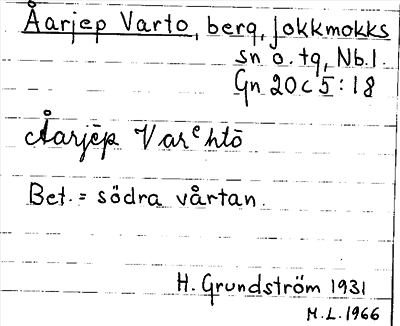 Åarjep Varto, berg, Jokkmokks
sn o. tg, Nb.l.
Gn 20c5:18
Åarjēp Varᵉhtō
Bet. = södra vårtan.
H. Grundström 1931
M.L. 1966